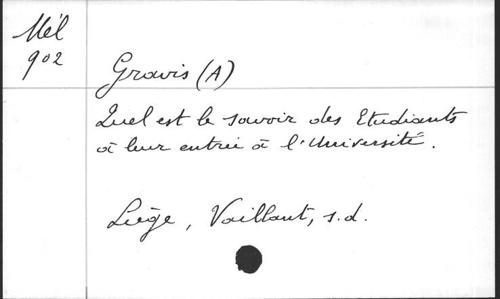 Mél
902
Gravis (A)
Quel est le savoir des Etudiants
à leur entrée à l'Université.
Liège, Vaillant, s.d.